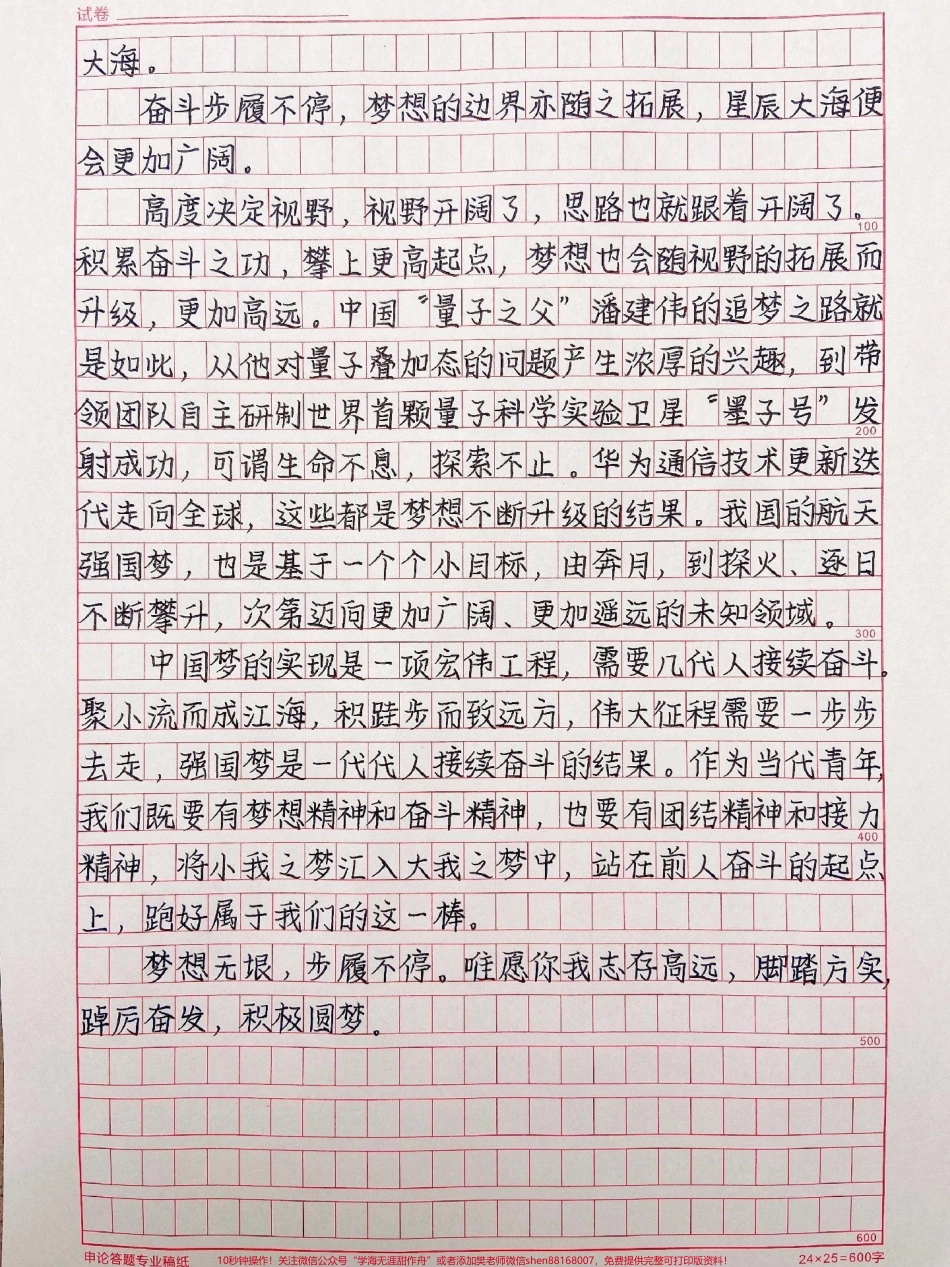 试卷
大海。
奋斗步履不停，梦想的边界亦随之拓展，星辰大海便
会更加广阔。
高度决定视野，视野开阔了，思路也就跟着开阔了。
100
积累奋斗之功，攀上更高起点，梦想也会随视野的拓展而
升级，更加高远。中国“量子之父”潘建伟的追梦之路就
是如此，从他对量子叠加态的问题产生浓厚的兴趣，到带
领团队自主研制世界首颗量子科学实验卫星“墨子号”发
200
射成功，可谓生命不息，探索不止。华为通信技术更新迭
代走向全球，这些都是梦想不断升级的结果。我国的航天
强国梦，也是基于一个个小目标，由奔月，到探火、逐日
不断攀升，次第迈向更加广阔、更加遥远的未知领域。
300
中国梦的实现是一项宏伟工程，需要几代人接续奋斗。
聚小流而成江海，积跬步而致远方，伟大征程需要一步步
去走，强国梦是一代代人接续奋斗的结果。作为当代青年，
我们既要有梦想精神和奋斗精神，也要有团结精神和接力
400
精神，将小我之梦汇入大我之梦中，站在前人奋斗的起点
上，跑好属于我们的这一棒。
梦想无垠，步履不停。唯愿你我志存高远，脚踏方实，
踔厉奋发，积极圆梦。
500
600
申论答题专业稿纸 10秒钟操作！关注微信公众号“学海无涯甜作舟”或者添加樊老师微信shen88168007，免费提供完整可打印版资料！ 24×25=600字